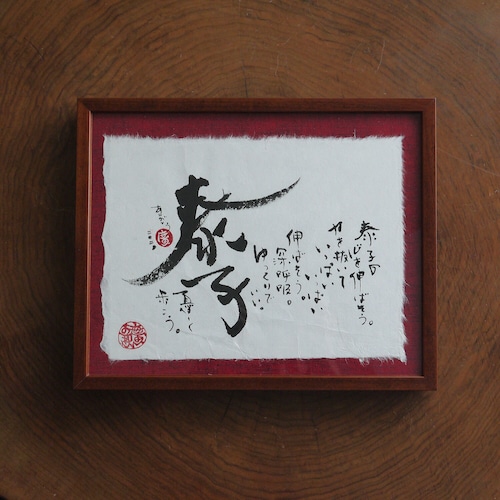 泰子の
心を伸ばそう。
力を抜いて
いっぱい
いっぱい
伸ばそう
深呼吸。
ゆっくりで
いい。
泰子
歩こう。